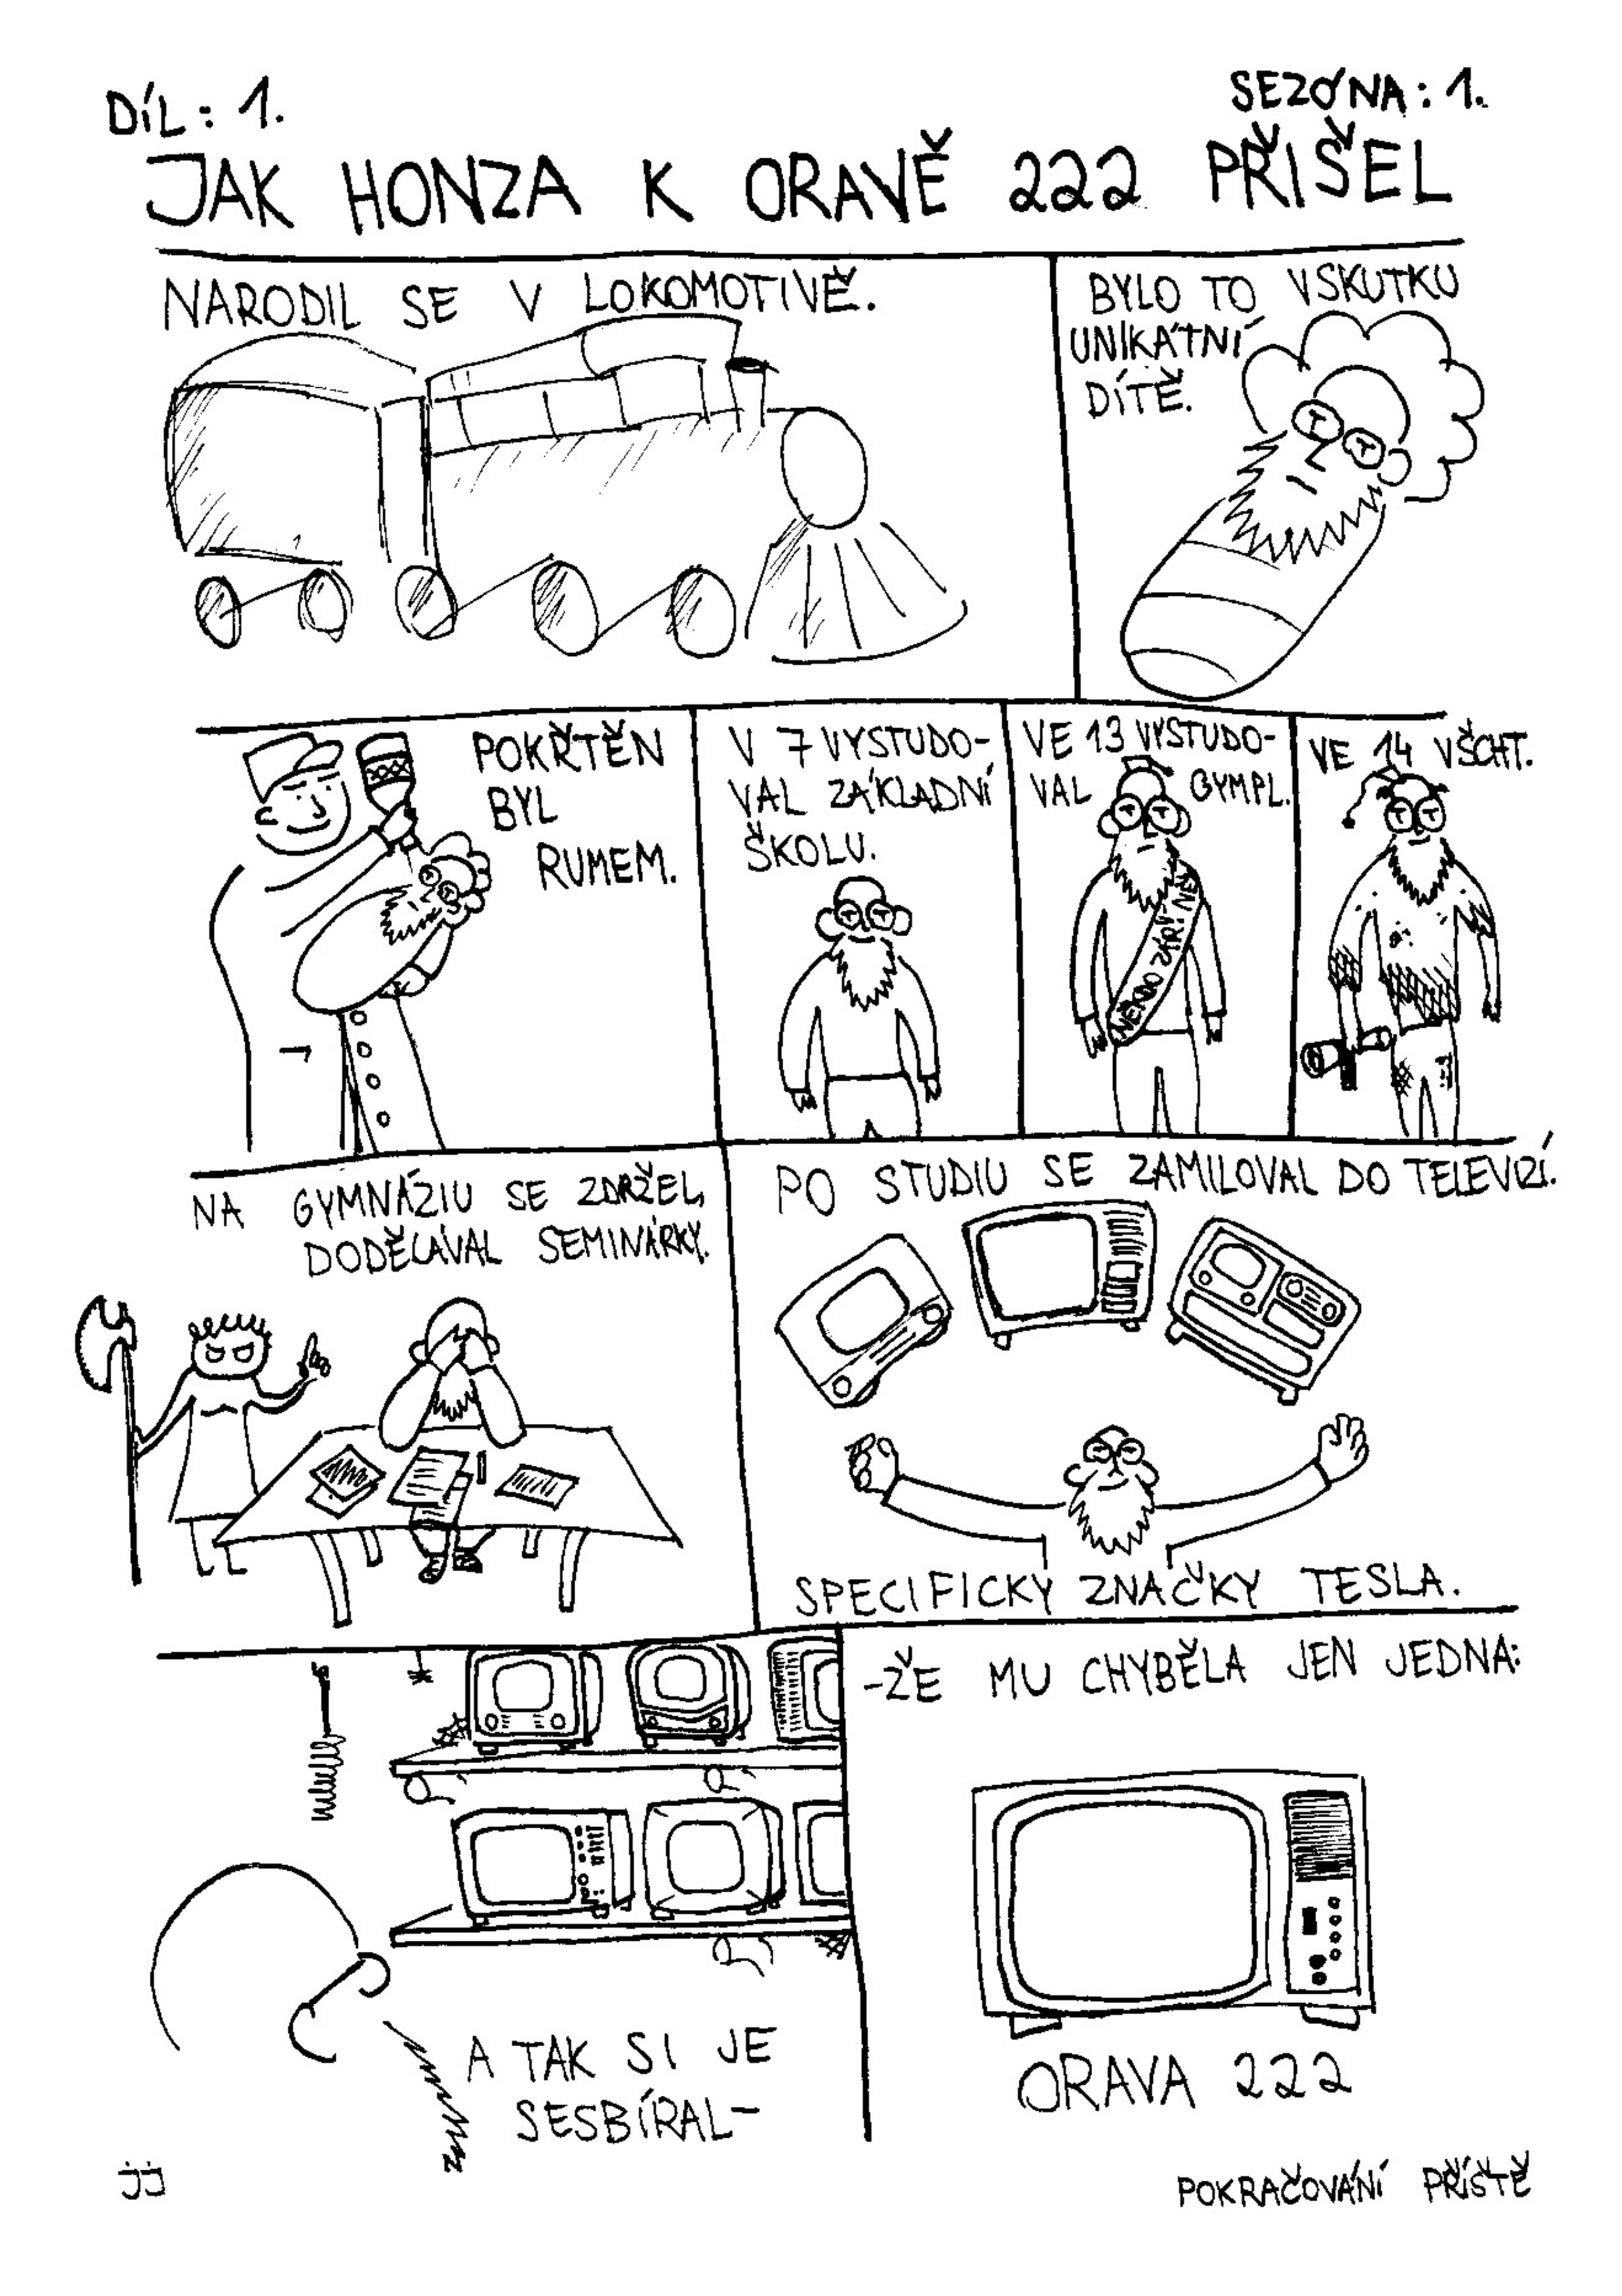 DÍL: 1.
SEZÓNA: 1.
JAK HONZA K ORAVĚ 222 PŘIŠEL
NARODIL SE V LOKOMOTIVĚ.
BYLO TO VSKUTKU
UNIKÁTNÍ
DÍTĚ.
POKŘTĚN
BYL
RUMEM.
V 7 VYSTUDO-
VAL ZÁKLADNÍ
ŠKOLU.
VE 13 VYSTUDO-
VAL GYMPL.
VE 14 VŠCHT.
NA GYMNÁZIU SE ZDRŽEL,
DODĚLÁVAL SEMINÁRKY.
PO STUDIU SE ZAMILOVAL DO TELEVIZÍ.
SPECIFICKY ZNAČKY TESLA.
A TAK SI JE
SESBÍRAL-
-ŽE MU CHYBĚLA JEN JEDNA:
ORAVA 222
jj
POKRAČOVÁNÍ PŘÍŠTĚ